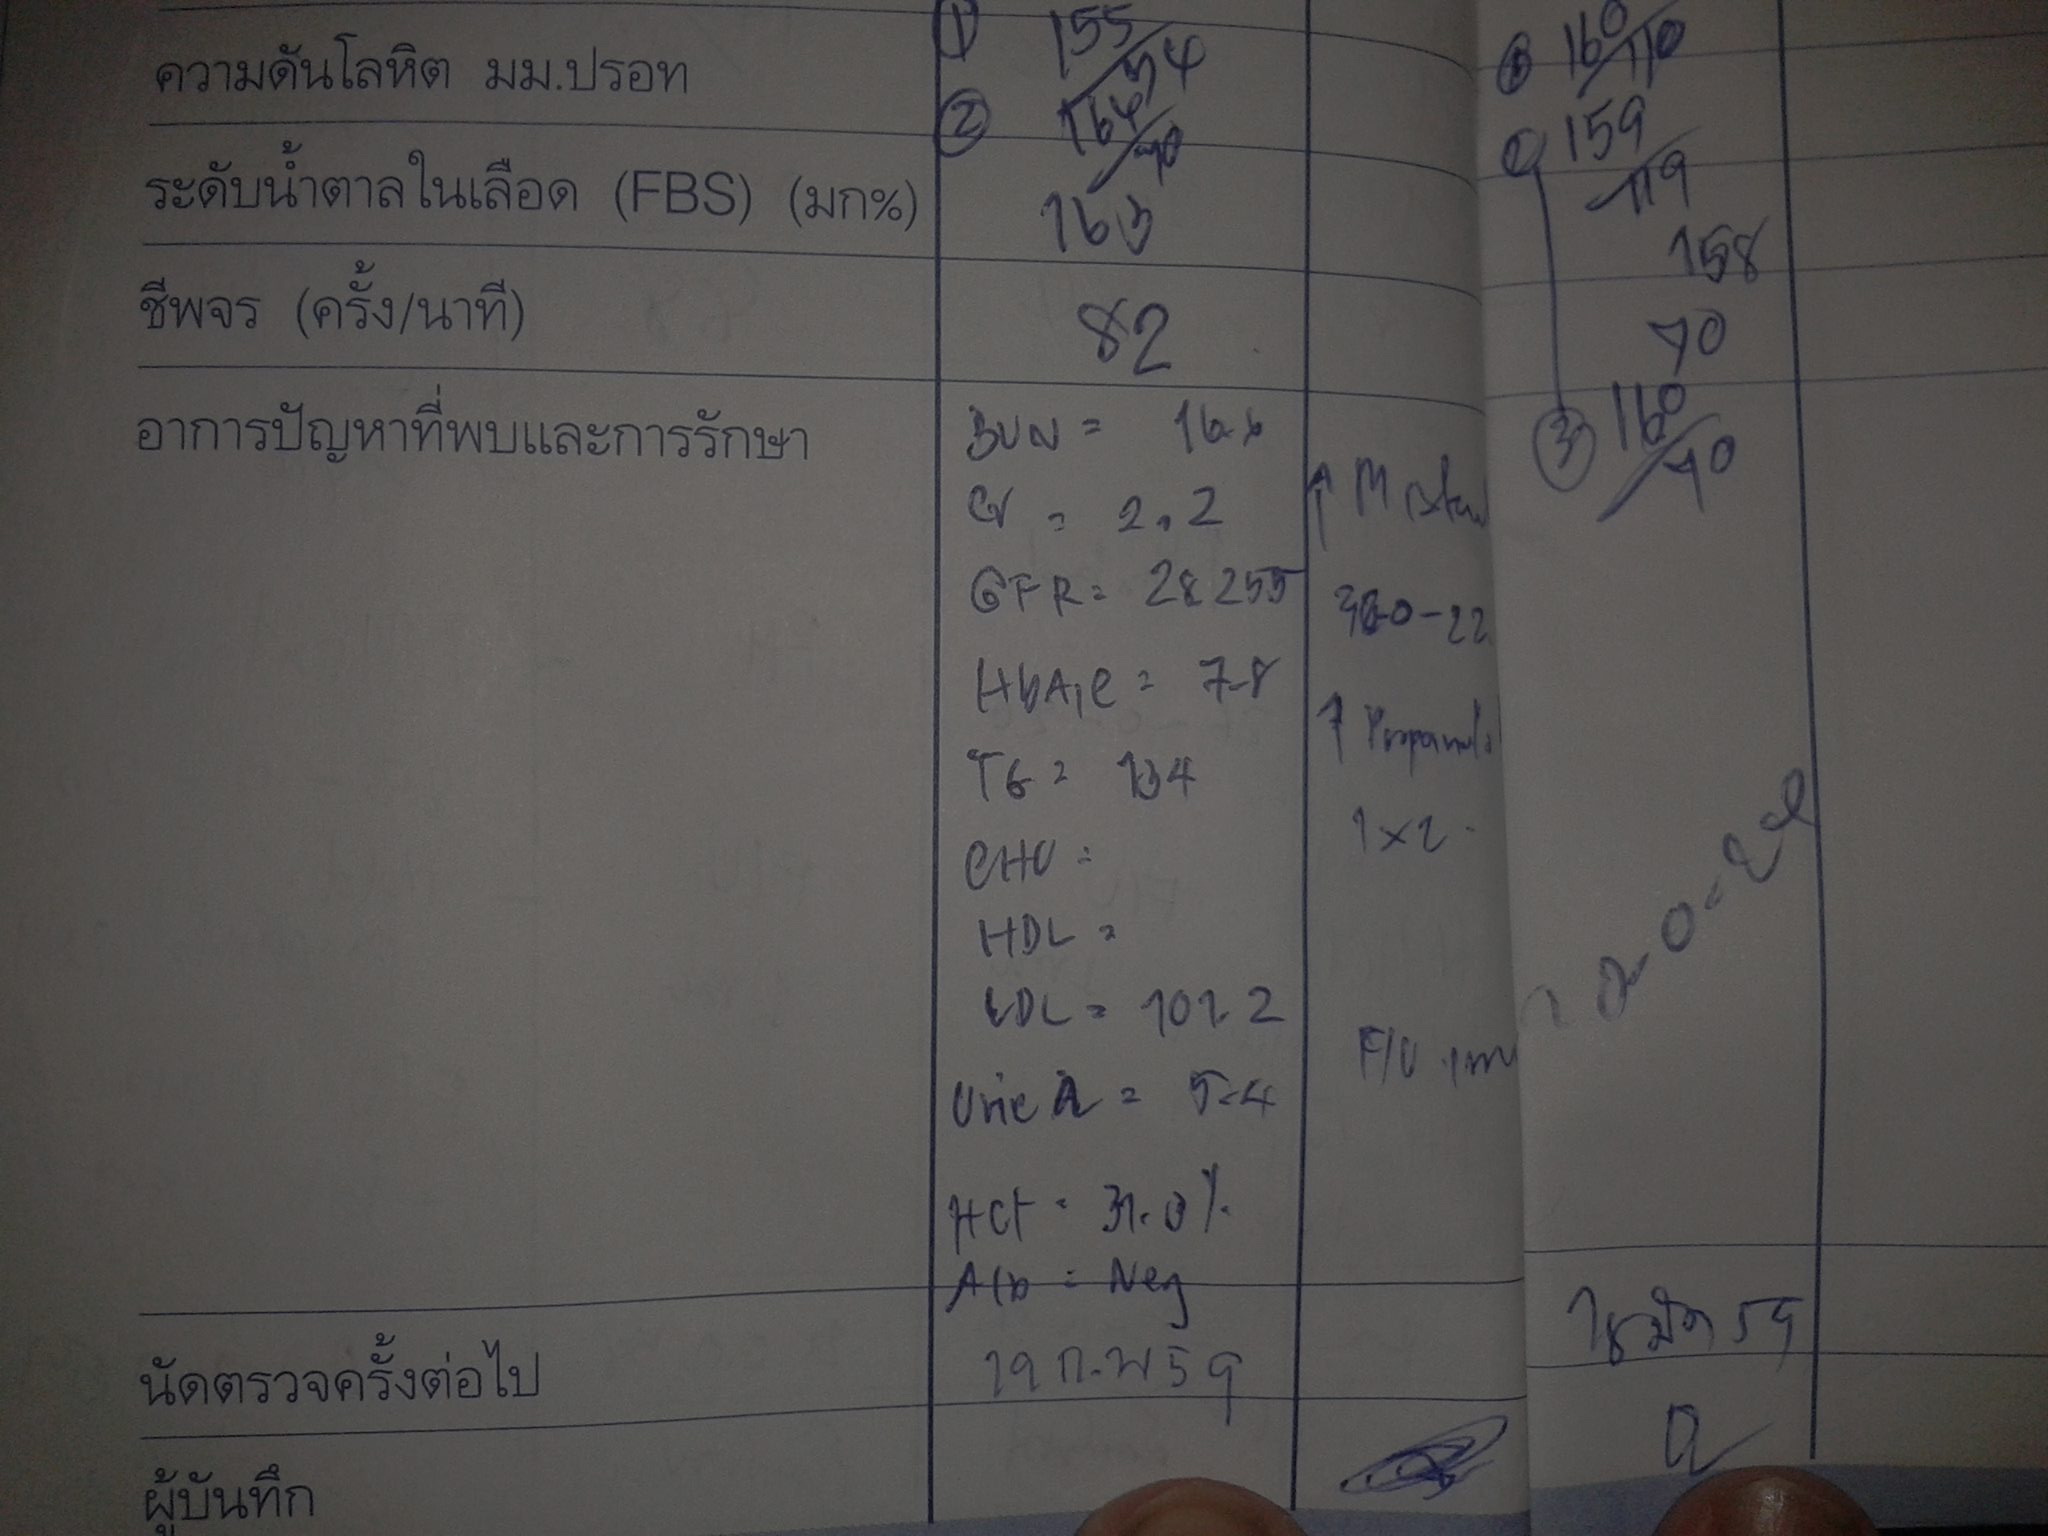 ① 155/94
ความดันโลหิต มม.ปรอท ② 164/90
160/110
159/119
ระดับน้ำตาลในเลือด (FBS) (มก%) 163 158
ชีพจร (ครั้ง/นาที) 82 70
③ 160/90
อาการปัญหาที่พบและการรักษา BUN = 16.6
Cr = 2.2
GFR = 28.255
-22
HbA1C = 7.8
↑
TG = 134
1x2
CHO =
HDL =
LDL = 101.2
F/U
Uric A = 5.4
HCt = 31.0%
Alb = Neg
นัดตรวจครั้งต่อไป 19 ก.พ 59 59
ผู้บันทึก